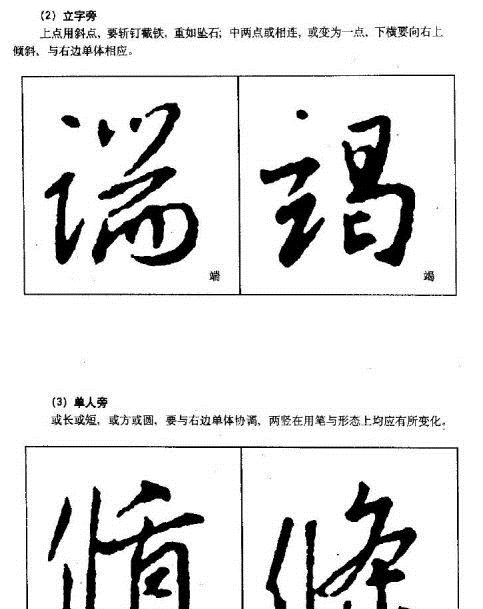 (2) 立字旁
上点用斜点，要斩钉截铁，重如坠石；中两点或相连，或变为一点，下横要向右上
倾斜、与右边单体相应。
端 竭
端 竭
(3) 单人旁
或长或短，或方或圆，要与右边单体协调，两竖在用笔与形态上均应有所变化。
循 條